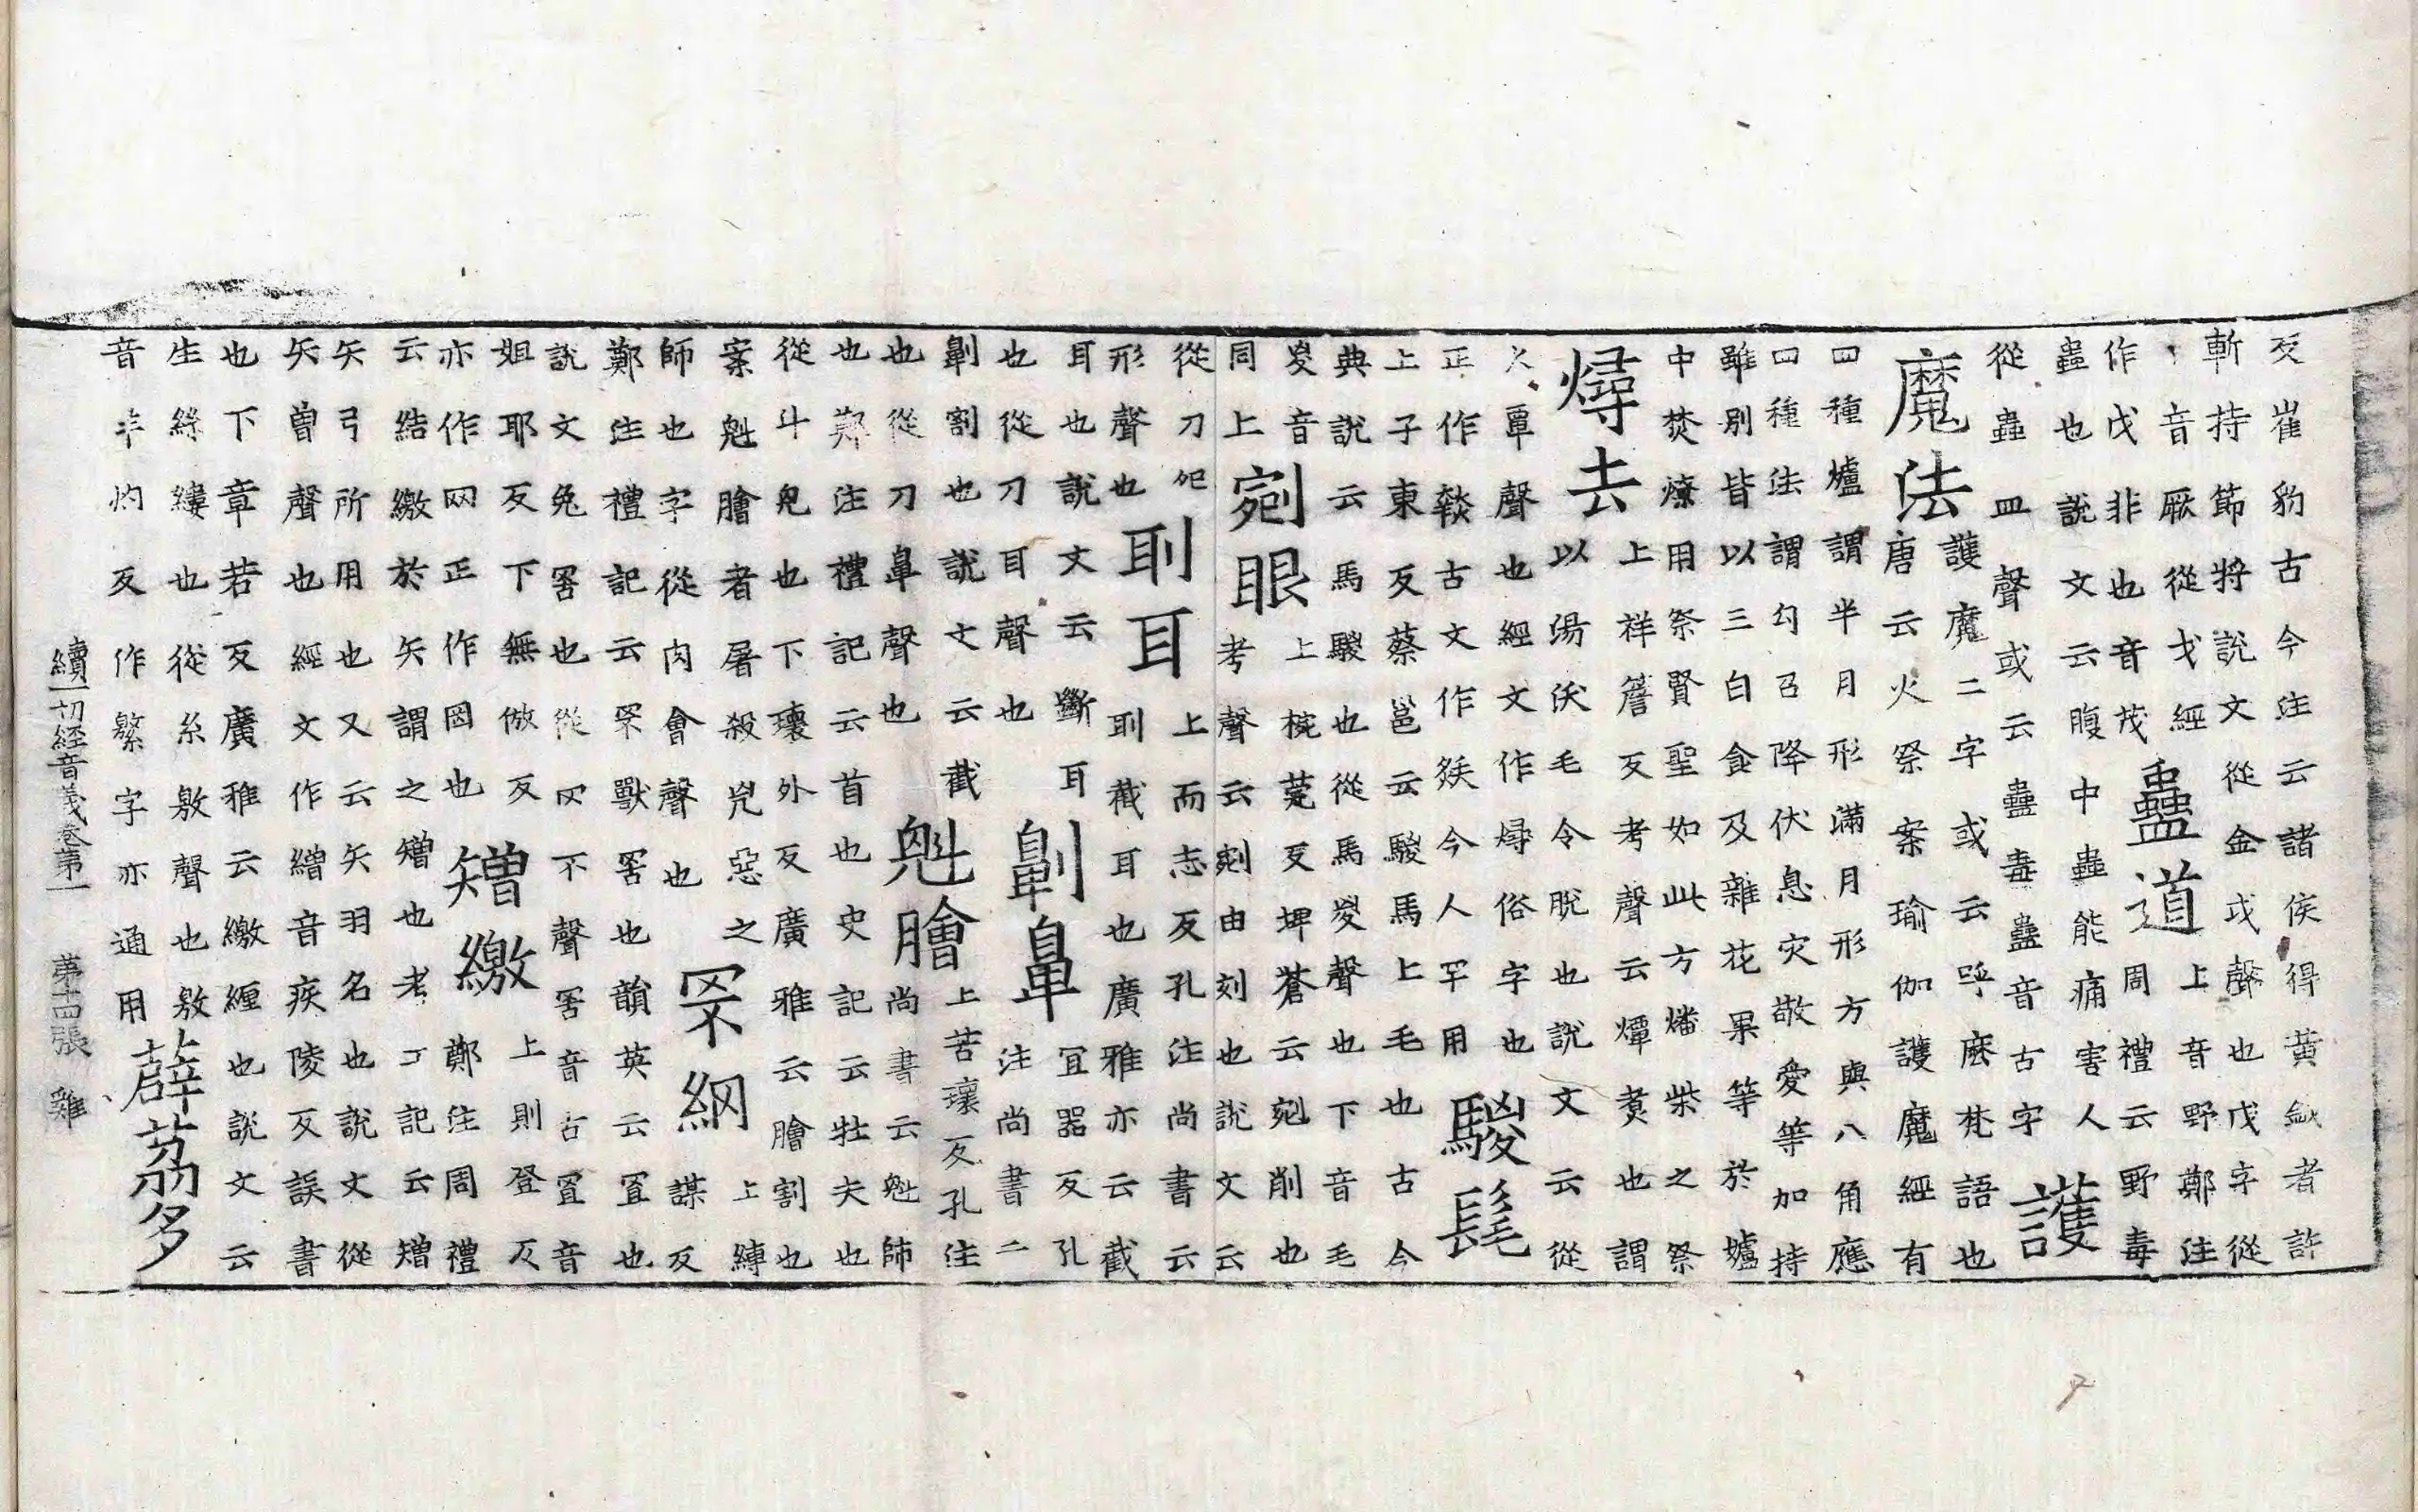 反崔豹古今注云諸侯得黃鉞者許
斬持節將說文從金戉聲也戊字從
丨音厥從戈經
作戊非也音茂
蠱道
上音野鄭注
周禮云野毒
蟲也說文云腹中蟲能痛害人
從蟲皿聲或云蠱毒蠱音古字
護
魔法
護魔二字或云呼麽梵語也
唐云火祭案瑜伽護魔經有
四種爐謂半月形滿月形方與八角應
四種法謂勾召降伏息灾敬愛等加持
雖別皆以三白食及雜花果等於爐
中焚燎用祭賢聖如此方燔柴之祭
燖去
上祥簷反考聲云燂煑也謂
以湯沃毛令脫也說文云從
火覃聲也經文作燖俗字也
正作古文作今人罕用
騣髦
上子東反蔡邕云騣馬上毛也古今
典說云馬騣也從馬㚇聲也下音毛
㚇音
同上
剜眼
上椀莞反埤蒼云剜削也
考聲云剜由刻也說文云
從刀夗
形聲也
刵耳
上而志反孔注尚書云
刵截耳也廣雅亦云截
耳也說文云斷耳
也從刀耳聲也
劓鼻
冝器反孔
注尚書云
劓割也說文云截
也從刀鼻聲也
魁膾
上苦瓌反孔注
尚書云魁師
也鄭注禮記云首也史記云壯夫也
從斗鬼也下瓌外反廣雅云膾割也
案魁膾者屠殺兇惡之
師也字從肉會聲也
罘網
上縛
謀反
鄭注禮記云罘獸罟也韻英云罝也
說文兔罟也從罒不聲罟音古罝音
姐耶反下無倣反
亦作网正作罔也
矰繳
上則登反
鄭注周禮
云結繳於矢謂之矰也考工記云矰
矢弓所用也又云矢羽名也說文從
矢曾聲也經文作繒音疾陵反誤書
也下章若反廣雅云繳纏也說文云
生絲縷也從糸敫聲也敫
音羊灼反作繁字亦通用
薜荔多
續一切経音義卷第一 第十四張 雞